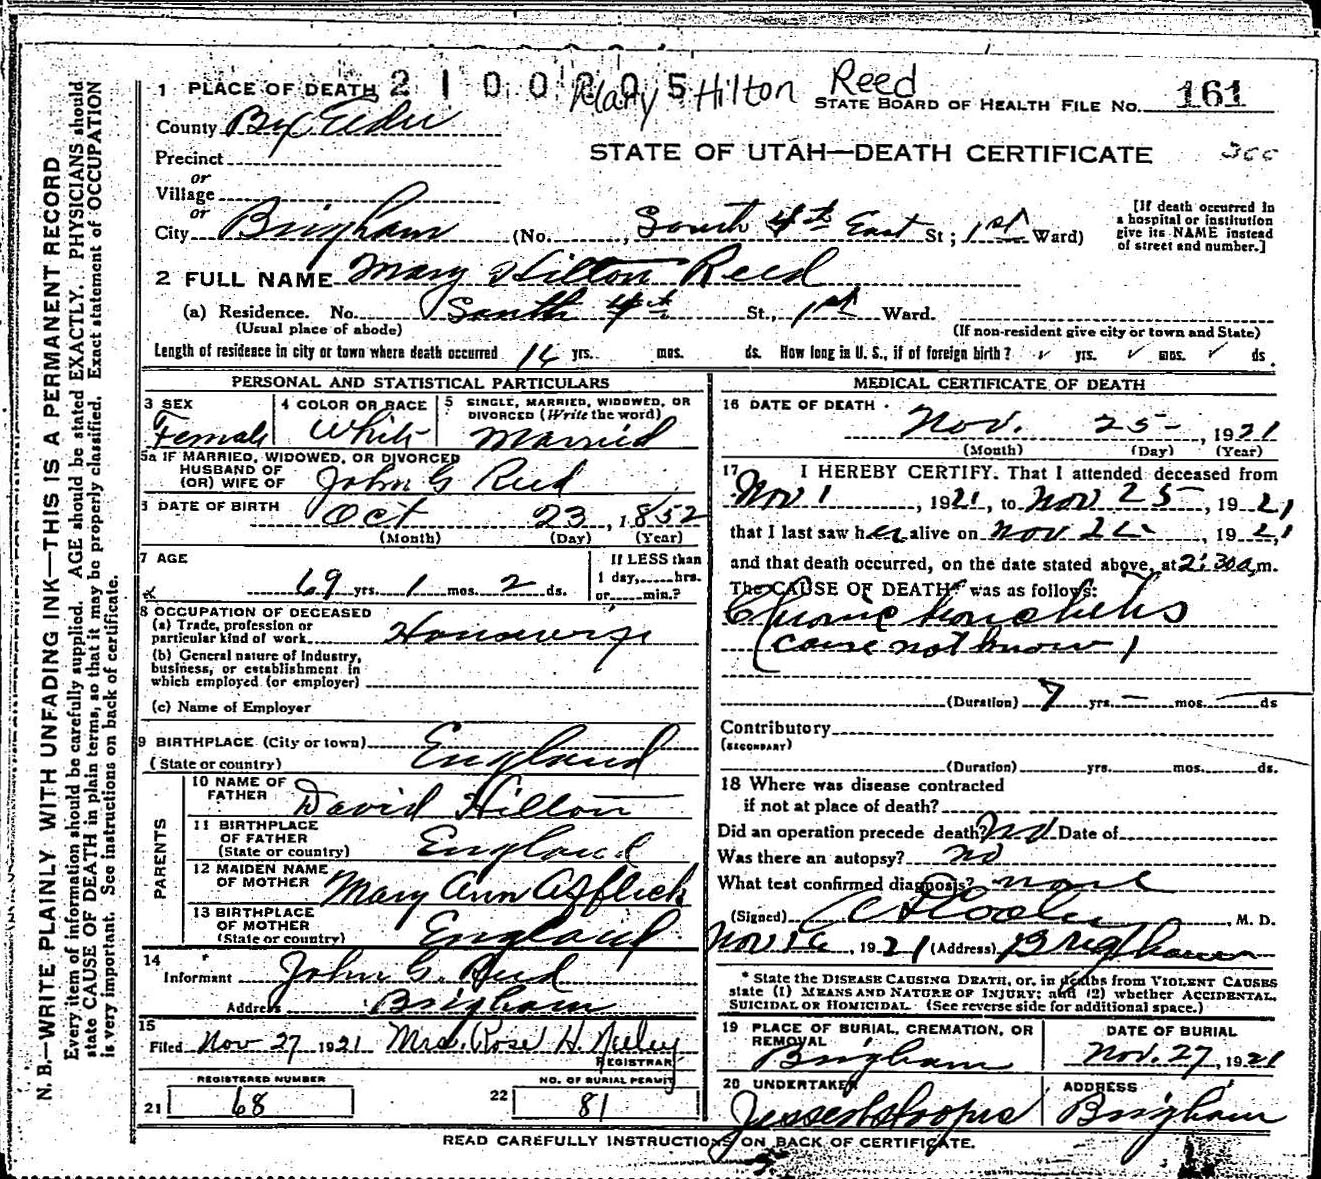 1 PLACE OF DEATH 2100005 Mary Hilton Reed
STATE BOARD OF HEALTH FILE NO. 161
County Box Elder
STATE OF UTAH—DEATH CERTIFICATE
300
Precinct
or
Village
or
City Brigham (No. , South 4th East St; 1st Ward)
[If death occurred in
a hospital or institution
give its NAME instead
of street and number.]
2 FULL NAME Mary Hilton Reed
(a) Residence. No. South 4th St., 1st Ward.
(Usual place of abode) (If non-resident give city or town and State)
Length of residence in city or town where death occurred yrs. mos. ds. How long in U. S., if of foreign birth? yrs. mos. ds.
PERSONAL AND STATISTICAL PARTICULARS
3 SEX Female
4 COLOR OR RACE White
5 SINGLE, MARRIED, WIDOWED, OR
DIVORCED (Write the word) Married
5a IF MARRIED, WIDOWED, OR DIVORCED
HUSBAND OF
(OR) WIFE OF John G Reed
6 DATE OF BIRTH Oct 23, 1852
(Month) (Day) (Year)
7 AGE 69 yrs. 1 mos. 2 ds.
If LESS than
1 day, hrs.
or min.?
8 OCCUPATION OF DECEASED
(a) Trade, profession or
particular kind of work Housewife
(b) General nature of Industry,
business, or establishment in
which employed (or employer)
(c) Name of Employer
9 BIRTHPLACE (City or town) England
(State or country)
PARENTS
10 NAME OF
FATHER David Hilton
11 BIRTHPLACE
OF FATHER
(State or country) England
12 MAIDEN NAME
OF MOTHER Mary Ann Afflick
13 BIRTHPLACE
OF MOTHER
(State or country) England
14
Informant John G. Reed
Address Brigham
15
Filed Nov 27 1921 Mrs. Rose H. Neeley
REGISTRAR
REGISTERED NUMBER
21 68
NO. OF BURIAL PERMIT
22 81
MEDICAL CERTIFICATE OF DEATH
16 DATE OF DEATH
Nov. 25, 1921
(Month) (Day) (Year)
17 I HEREBY CERTIFY. That I attended deceased from
Nov 1, 1921, to Nov 25, 1921
that I last saw her alive on Nov , 1921,
and that death occurred, on the date stated above, at 2:30 a.m.
The CAUSE OF DEATH* was as follows:
Chronic bronchitis
(cause not known)
(Duration) 7 yrs. — mos. — ds
Contributory
(SECONDARY)
(Duration) yrs. mos. ds.
18 Where was disease contracted
if not at place of death?
Did an operation precede death? No. Date of
Was there an autopsy? no
What test confirmed diagnosis? none
(Signed) , M. D.
Nov , 1921 (Address) Brigham
* State the DISEASE CAUSING DEATH, or, in deaths from VIOLENT CAUSES
state (1) MEANS AND NATURE OF INJURY; and (2) whether ACCIDENTAL,
SUICIDAL OR HOMICIDAL. (See reverse side for additional space.)
19 PLACE OF BURIAL, CREMATION, OR
REMOVAL Brigham
DATE OF BURIAL
Nov. 27, 1921
20 UNDERTAKER
ADDRESS
Brigham
READ CAREFULLY INSTRUCTIONS ON BACK OF CERTIFICATE.
N. B.—WRITE PLAINLY WITH UNFADING INK—THIS IS A PERMANENT RECORD
Every item of information should be carefully supplied. AGE should be stated EXACTLY. PHYSICIANS should
state CAUSE OF DEATH in plain terms, so that it may be properly classified. Exact statement of OCCUPATION
is very important. See instructions on back of certificate.